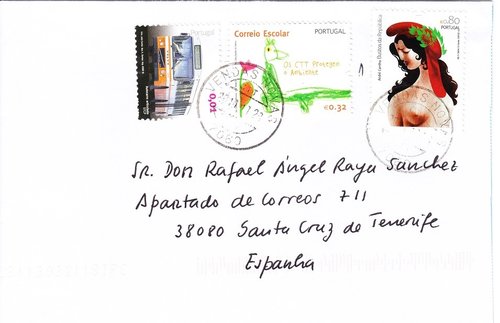 Portugal
Correio Escolar
PORTUGAL
Os CTT Protegem
o Ambiente
0,01
€0.32
€0.80
PORTUGAL
VENDAS NOVAS
Sr. Don Rafael Ángel Raya Sanchez
Apartado de Correos 711
38080 Santa Cruz de Tenerife
Espanha